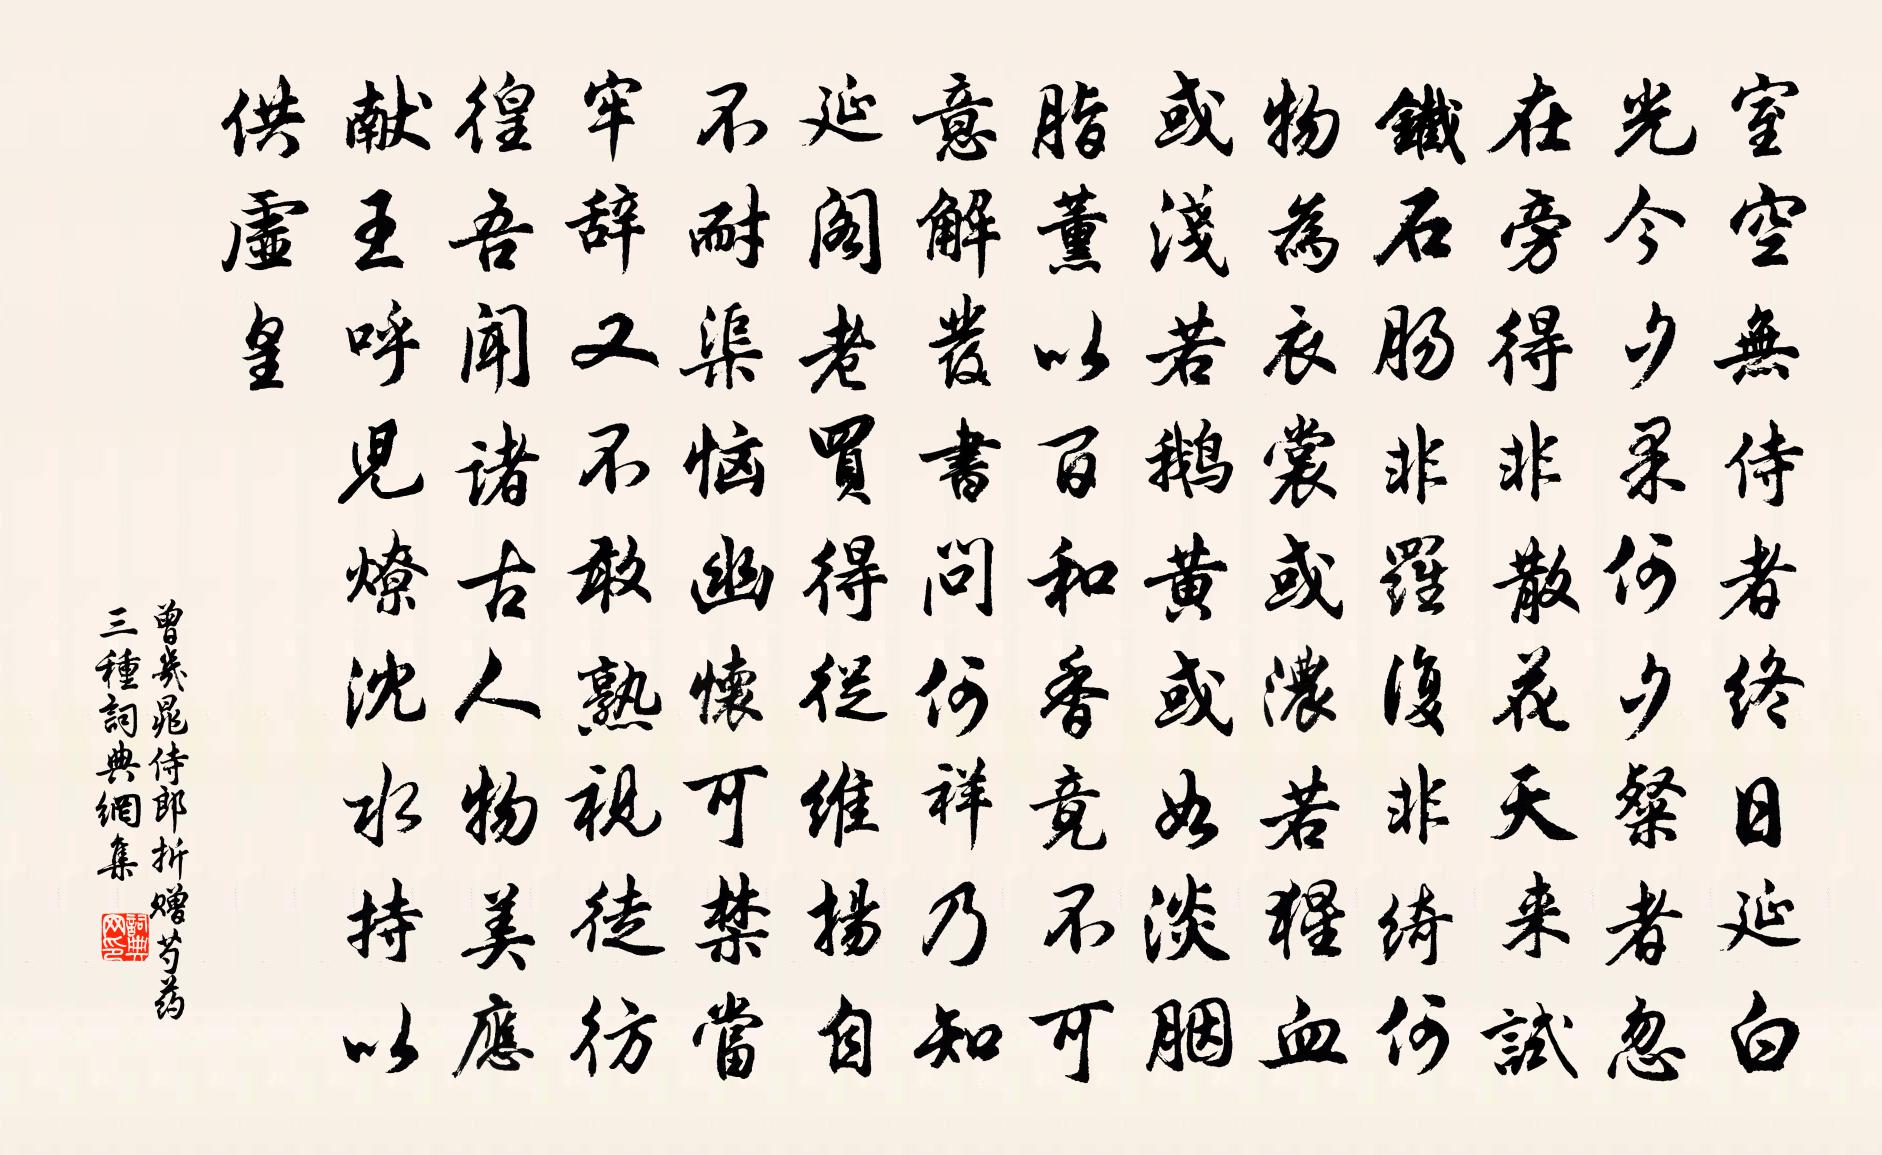 室空無侍者终日延白
光今夕果何夕粲者忽
在旁得非散花天来試
鐵石肠非羅復非綺何
物為衣裳或濃若猩血
或淺若鹅黄或如淡胭
脂薰以百和香竟不可
意解發書問何祥乃知
延阁老買得從维揚自
不耐渠恼幽懷可禁當
牢辞又不敢熟視徒彷
徨吾闻诸古人物美應
献王呼兒燎沈水持以
供虚皇
曾幾晁侍郎折赠芍药
三種詞典網集
詞典
网印